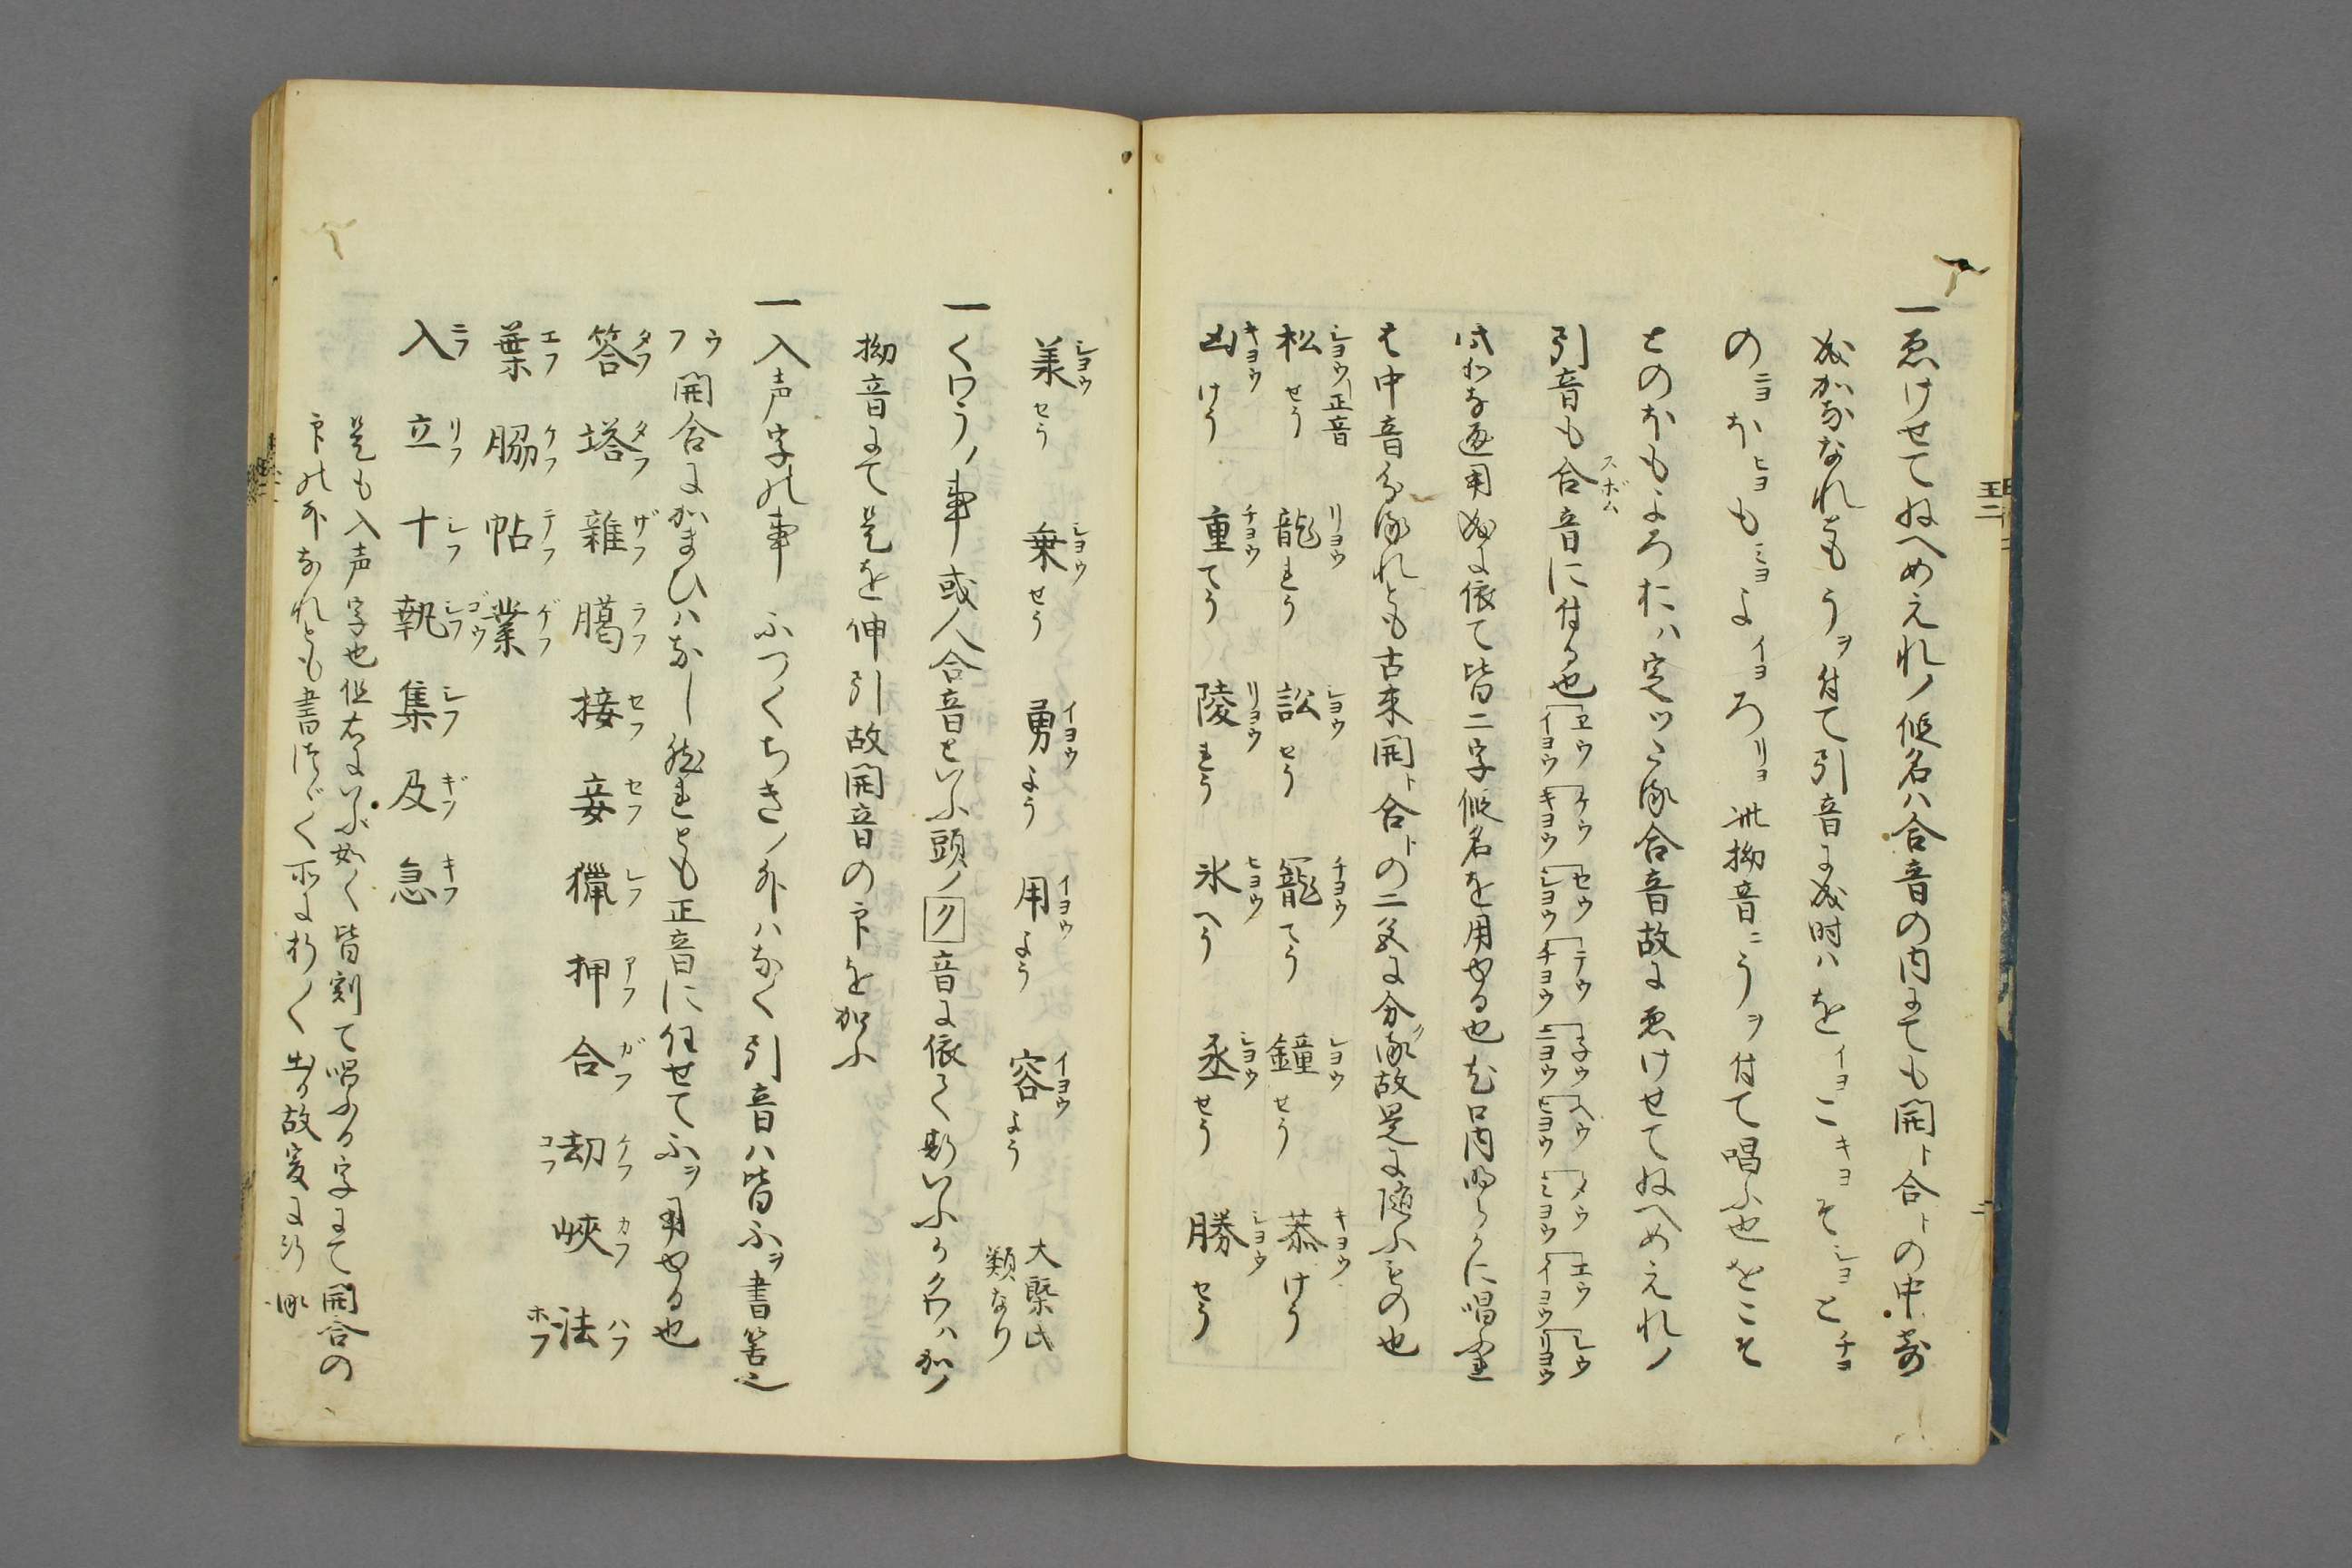 一ゑけせてねへめえれノ仮名ハ合音の内にても開ト合トの中
なれともうヲ付て引音に成時ハをイヨこキヨそショとチヨ
のニヨほヒヨもミヨよイヨろリヨ此拗音ニうヲ付て唱ふ也をこそ
とのほもよろおハ定ツ合音故にゑけせてねへめえれノ
引音も合スボム音に付る也ヱウイヨウケウキヨウセウシヨウテウチヨウネウニヨウヘウヒヨウメウミヨウエウイヨウレウリヨウ
に依て皆二字仮名を用る也口内明らかに唱
中音れとも古来開ト合トの二に分故是に随ふもの也
松シヨウ正音せう 龍リヨウれう 訟シヨウせう 寵チヨウてう 鐘シヨウせう 恭キヨウけう
凶キヨウけう 重チヨウてう 陵リヨウれう 氷ヒヨウへう 丞シヨウせう 勝シヨウせう
シヨウせう 乗シヨウせう 勇イヨウよう 用イヨウよう 容イヨウよう 大槩此類なり
一くワうノ事或人合音といふ頭ノク音に依て斯いふかクワハかノ
拗音にて是を伸引故開音の印を加ふ
一入声字の事 ふつくちきノ外ハなく引音ハ皆ふヲ書筈也
ウフ開合にかまひハなし然れとも正音に任せてふヲ用やる也
答タフ 塔タフ 雑ザフ 臈ラフ 接セフ 妾セフ 猟レフ 押アフ 合ガフ 劫ケフコフ 峡カフ 法ハフホフ
葉エフ 脇ケフ 帖テフ 業ゲフゴウ
入ニフ 立リフ 十シフ 執シフ 集シフ 及ギフ 急キフ
是も入声字也但右にいふ如く皆刻て唱ふる字にて開合の
印の外なれとも書く所に折々出る故爰に